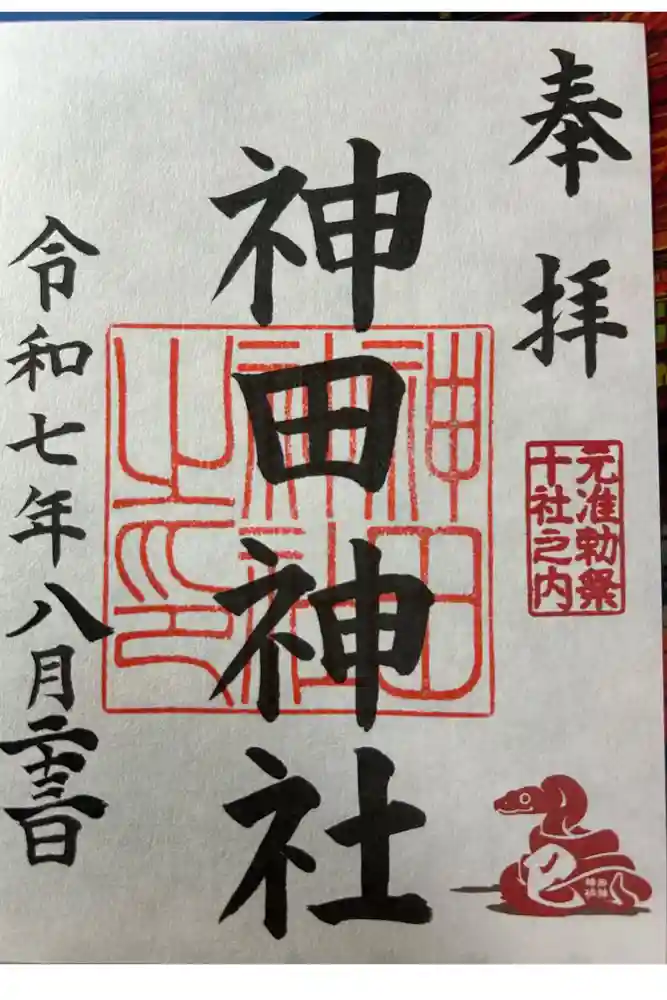 奉拝
元准勅祭
十社之内
巳
神田神社
神田
神社
之印
令和七年八月二十三日